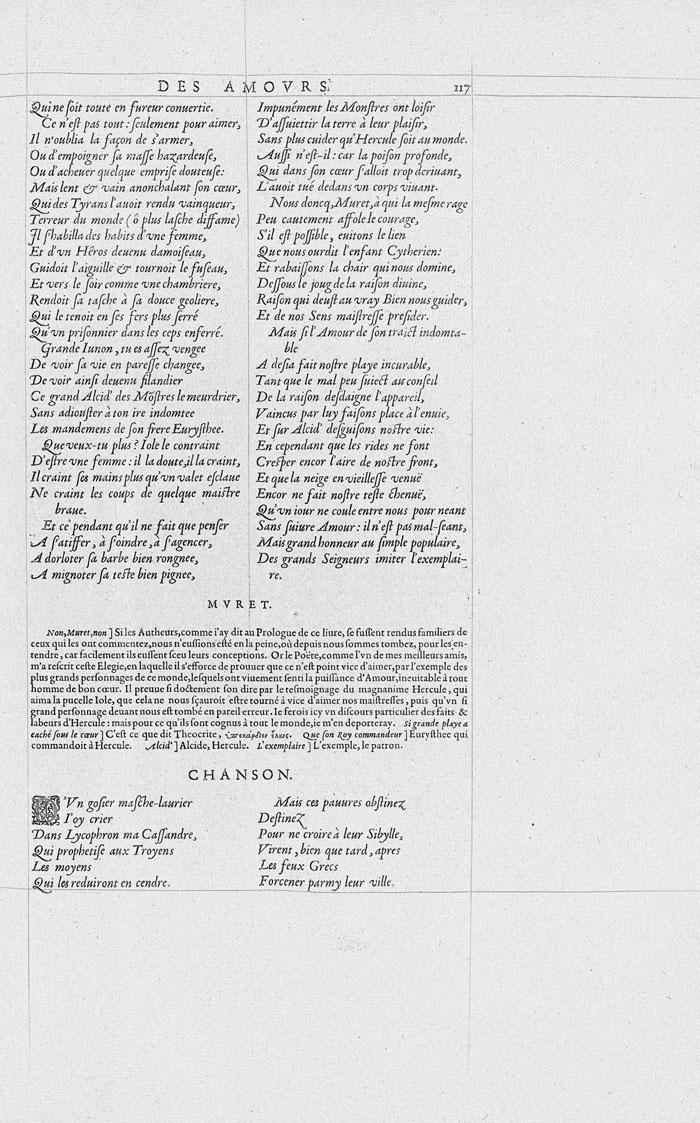 DES AMOVRS. 117
Qui ne ſoit toute en fureur conuertie.
Ce n'eſt pas tout : ſeulement pour aimer,
Il n'oublia la façon de s'armer,
Ou d'empoigner ſa maſſe hazardeuſe,
Ou d'acheuer quelque empriſe douteuſe:
Mais lent & vain anonchalant ſon cœur,
Qui des Tyrans l'auoit rendu vainqueur,
Terreur du monde (ô plus laſche diffame)
Il ſhabilla des habits d'vne femme,
Et d'vn Hêros deuenu damoiſeau,
Guidoit l'aiguille & tournoit le fuſeau,
Et vers le ſoir comme vne chambriere,
Rendoit ſa taſche à ſa douce geoliere,
Qui le tenoit en ſes fers plus ſerré
Qu'vn priſonnier dans les ceps enferré.
Grande Iunon, tu es aſſez vengee
De voir ſa vie en pareſſe changee,
De voir ainſi deuenu filandier
Ce grand Alcid' des Mõſtres le meurdrier,
Sans adiouſter à ton ire indomtee
Les mandemens de ſon frere Euryſthee.
Que veux-tu plus? Iole le contraint
D'eſtre vne femme : il la doute, il la craint,
Il craint ſes mains plus qu'vn valet eſclaue
Ne craint les coups de quelque maiſtre
braue.
Et ce pendant qu'il ne fait que penſer
A ſ'atiffer, à ſ'oindre, à ſ'agencer,
A dorloter ſa barbe bien rongnee,
A mignoter ſa teſte bien pignee,
Impunément les Monſtres ont loiſir
D'aſſuiettir la terre à leur plaiſir,
Sans plus cuider qu'Hercule ſoit au monde.
Auſſi n'eſt-il : car la poiſon profonde,
Qui dans ſon cœur ſ'alloit trop deriuant,
L'auoit tué dedans vn corps viuant.
Nous doncq, Muret, à qui la meſme rage
Peu cautement affole le courage,
S'il eſt poſſible, euitons le lien
Que nous ourdit l'enfant Cytherien:
Et rabaiſſons la chair qui nous domine,
Deſſous le joug de la raiſon diuine,
Raiſon qui deuſt au vray Bien nous guider,
Et de nos Sens maiſtreſſe preſider.
Mais ſi l'Amour de ſon traict indomta-
ble
A deſia fait noſtre playe incurable,
Tant que le mal peu ſuiect au conſeil
De la raiſon deſdaigne l'appareil,
Vaincus par luy faiſons place à l'enuie,
Et ſur Alcid' deſguiſons noſtre vie:
En cependant que les rides ne font
Creſper encor l'aire de noſtre front,
Et que la neige en vieilleſſe venuë
Encor ne fait noſtre teſte chenuë,
Qu'vn iour ne coule entre nous pour neant
Sans ſuiure Amour : il n'eſt pas mal-ſeant,
Mais grand honneur au ſimple populaire,
Des grands Seigneurs imiter l'exemplai-
re.
MVRET.
Non, Muret, non ] Si les Autheurs, comme i'ay dit au Prologue de ce liure, ſe fuſſent rendus familiers de
ceux qui les ont commentez, nous n'euſſions eſté en la peine, où depuis nous ſommes tombez, pour les en-
tendre, car facilement ils euſſent ſceu leurs conceptions. Or le Poëte, comme l'vn de mes meilleurs amis,
m'a reſcrit ceſte Elegie, en laquelle il s'efforce de prouuer que ce n'eſt point vice d'aimer, par l'exemple des
plus grands perſonnages de ce monde, leſquels ont viuement ſenti la puiſſance d'Amour, ineuitable à tout
homme de bon cœur. Il preuue ſi doctement ſon dire par le teſmoignage du magnanime Hercule, qui
aima la pucelle Iole, que cela ne nous ſçauroit eſtre tourné à vice d'aimer nos maiſtreſſes, puis qu'vn ſi
grand perſonnage deuant nous eſt tombé en pareil erreur. Ie ferois icy vn diſcours particulier des faits &
labeurs d'Hercule : mais pour ce qu'ils ſont cognus à tout le monde, ie m'en deporteray. Si grande playe a
caché ſous le cœur ] C'eſt ce que dit Theocrite, Que ſon Roy commandeur ] Euryſthee qui
commandoit à Hercule. Alcid' ] Alcide, Hercule. L'exemplaire ] L'exemple, le patron.
CHANSON.
D'Vn goſier maſche-laurier
I'oy crier
Dans Lycophron ma Caſſandre,
Qui prophetiſe aux Troyens
Les moyens
Qui les reduiront en cendre.
Mais ces pauures obſtinez
Deſtinez
Pour ne croire à leur Sibylle,
Virent, bien que tard, apres
Les feux Grecs
Forcener parmy leur ville.